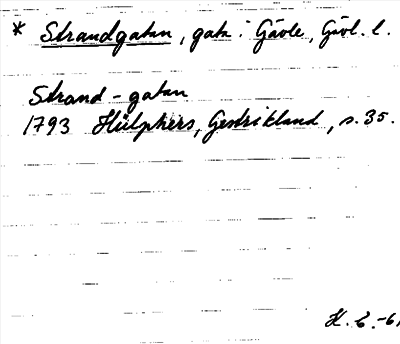 * Strandgatan, gata i Gävle, Gävl. l.
Strand-gatan
1793 Hülphers, Gestrikland, s. 35.